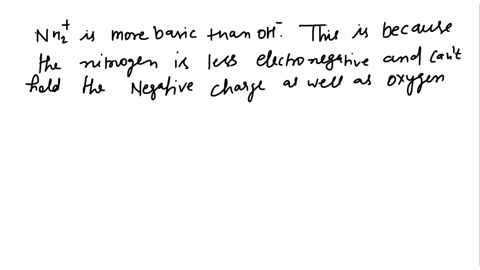 Nn₂⁺ is more basic than OH⁻. This is because
the nitrogen is less electronegative and can't
hold the Negative charge as well as oxygen